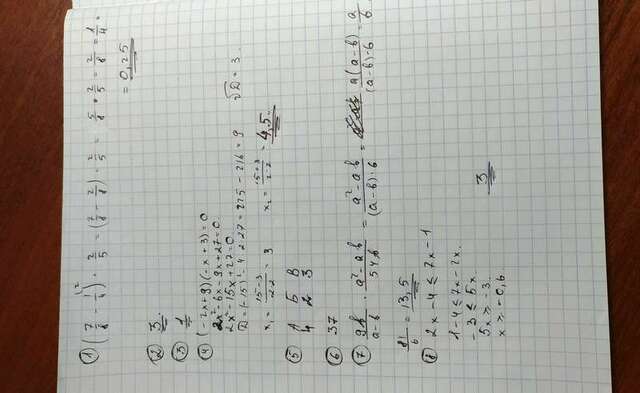 ① (7/8 - 1/4^{12}) · 2/5 = (7/8 - 2/8) · 2/5 = 5/8 · 2/5 = 2/8 = 1/4 =
= 0,25
② 3
③ 1
④ (-2x+9)(-x+3)=0
2x²-6x-9x+27=0
2x²-15x+27=0
D=(-15)²-4·2·27=225-216=9 √D=3
x₁ = (15-3)/(2·2) = 3 x₂ = (15+3)/(2·2) = 4,5
⑤ А Б В
4 2 3
⑥ 37
⑦ 9b/(a-b) · (a²-ab)/(54b) = (a²-ab)/((a-b)·6) = a(a-b)/((a-b)·6) = a/6
81/6 = 13,5
⑧ 2x-4≤7x-1
1-4≤7x-2x
-3≤5x
5x≥-3
x≥-0,6
3